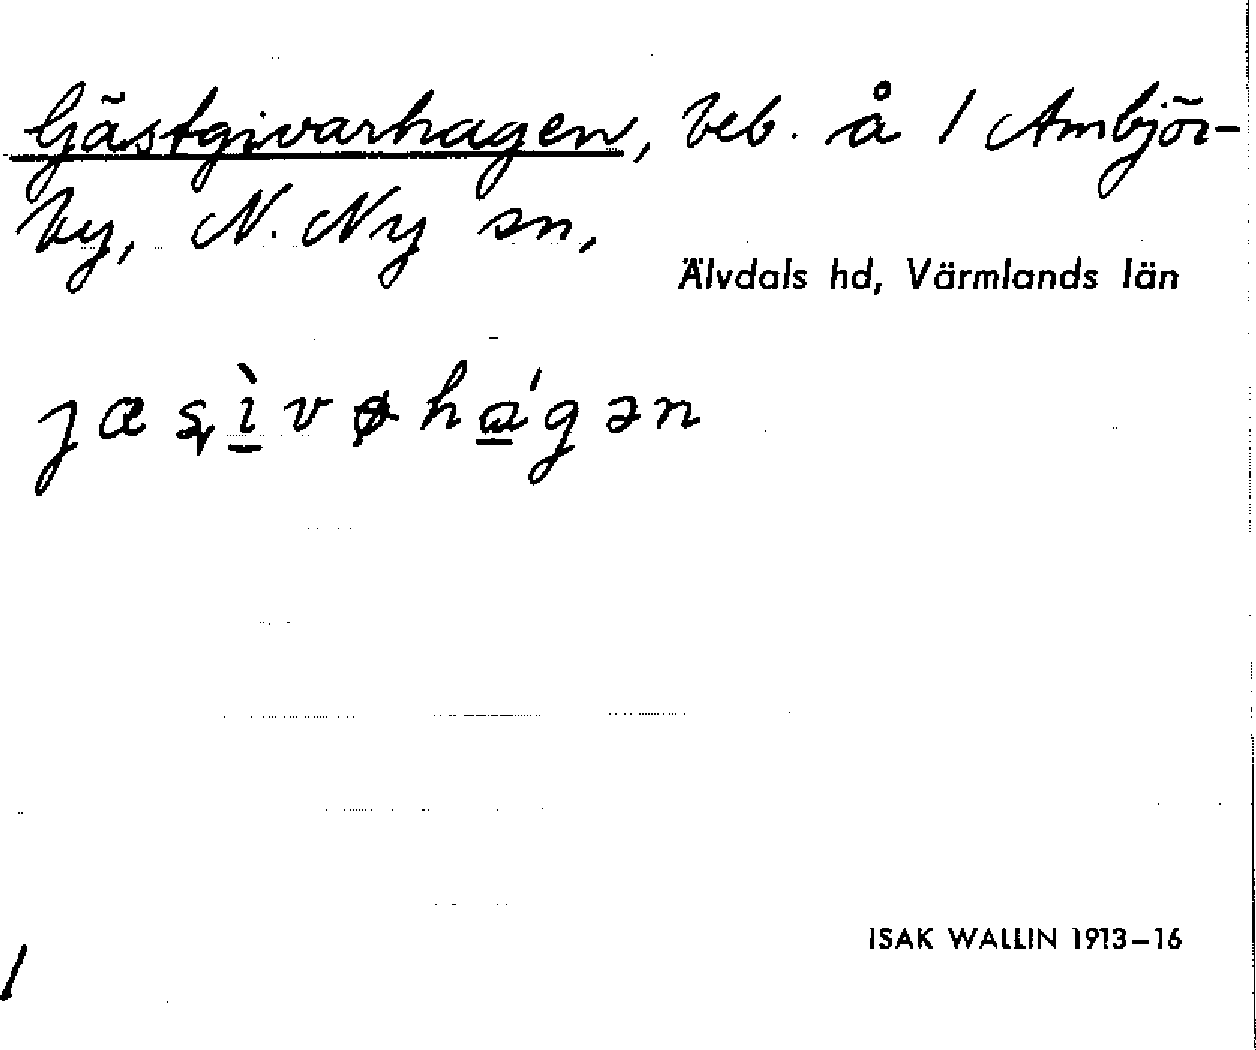 Gästgivarhagen, beb. å 1 Ambjör-
by, N. Ny sn,
Älvdals hd, Värmlands län
ȷæşì̠vøhá̠gən
ISAK WALLIN 1913–16
1